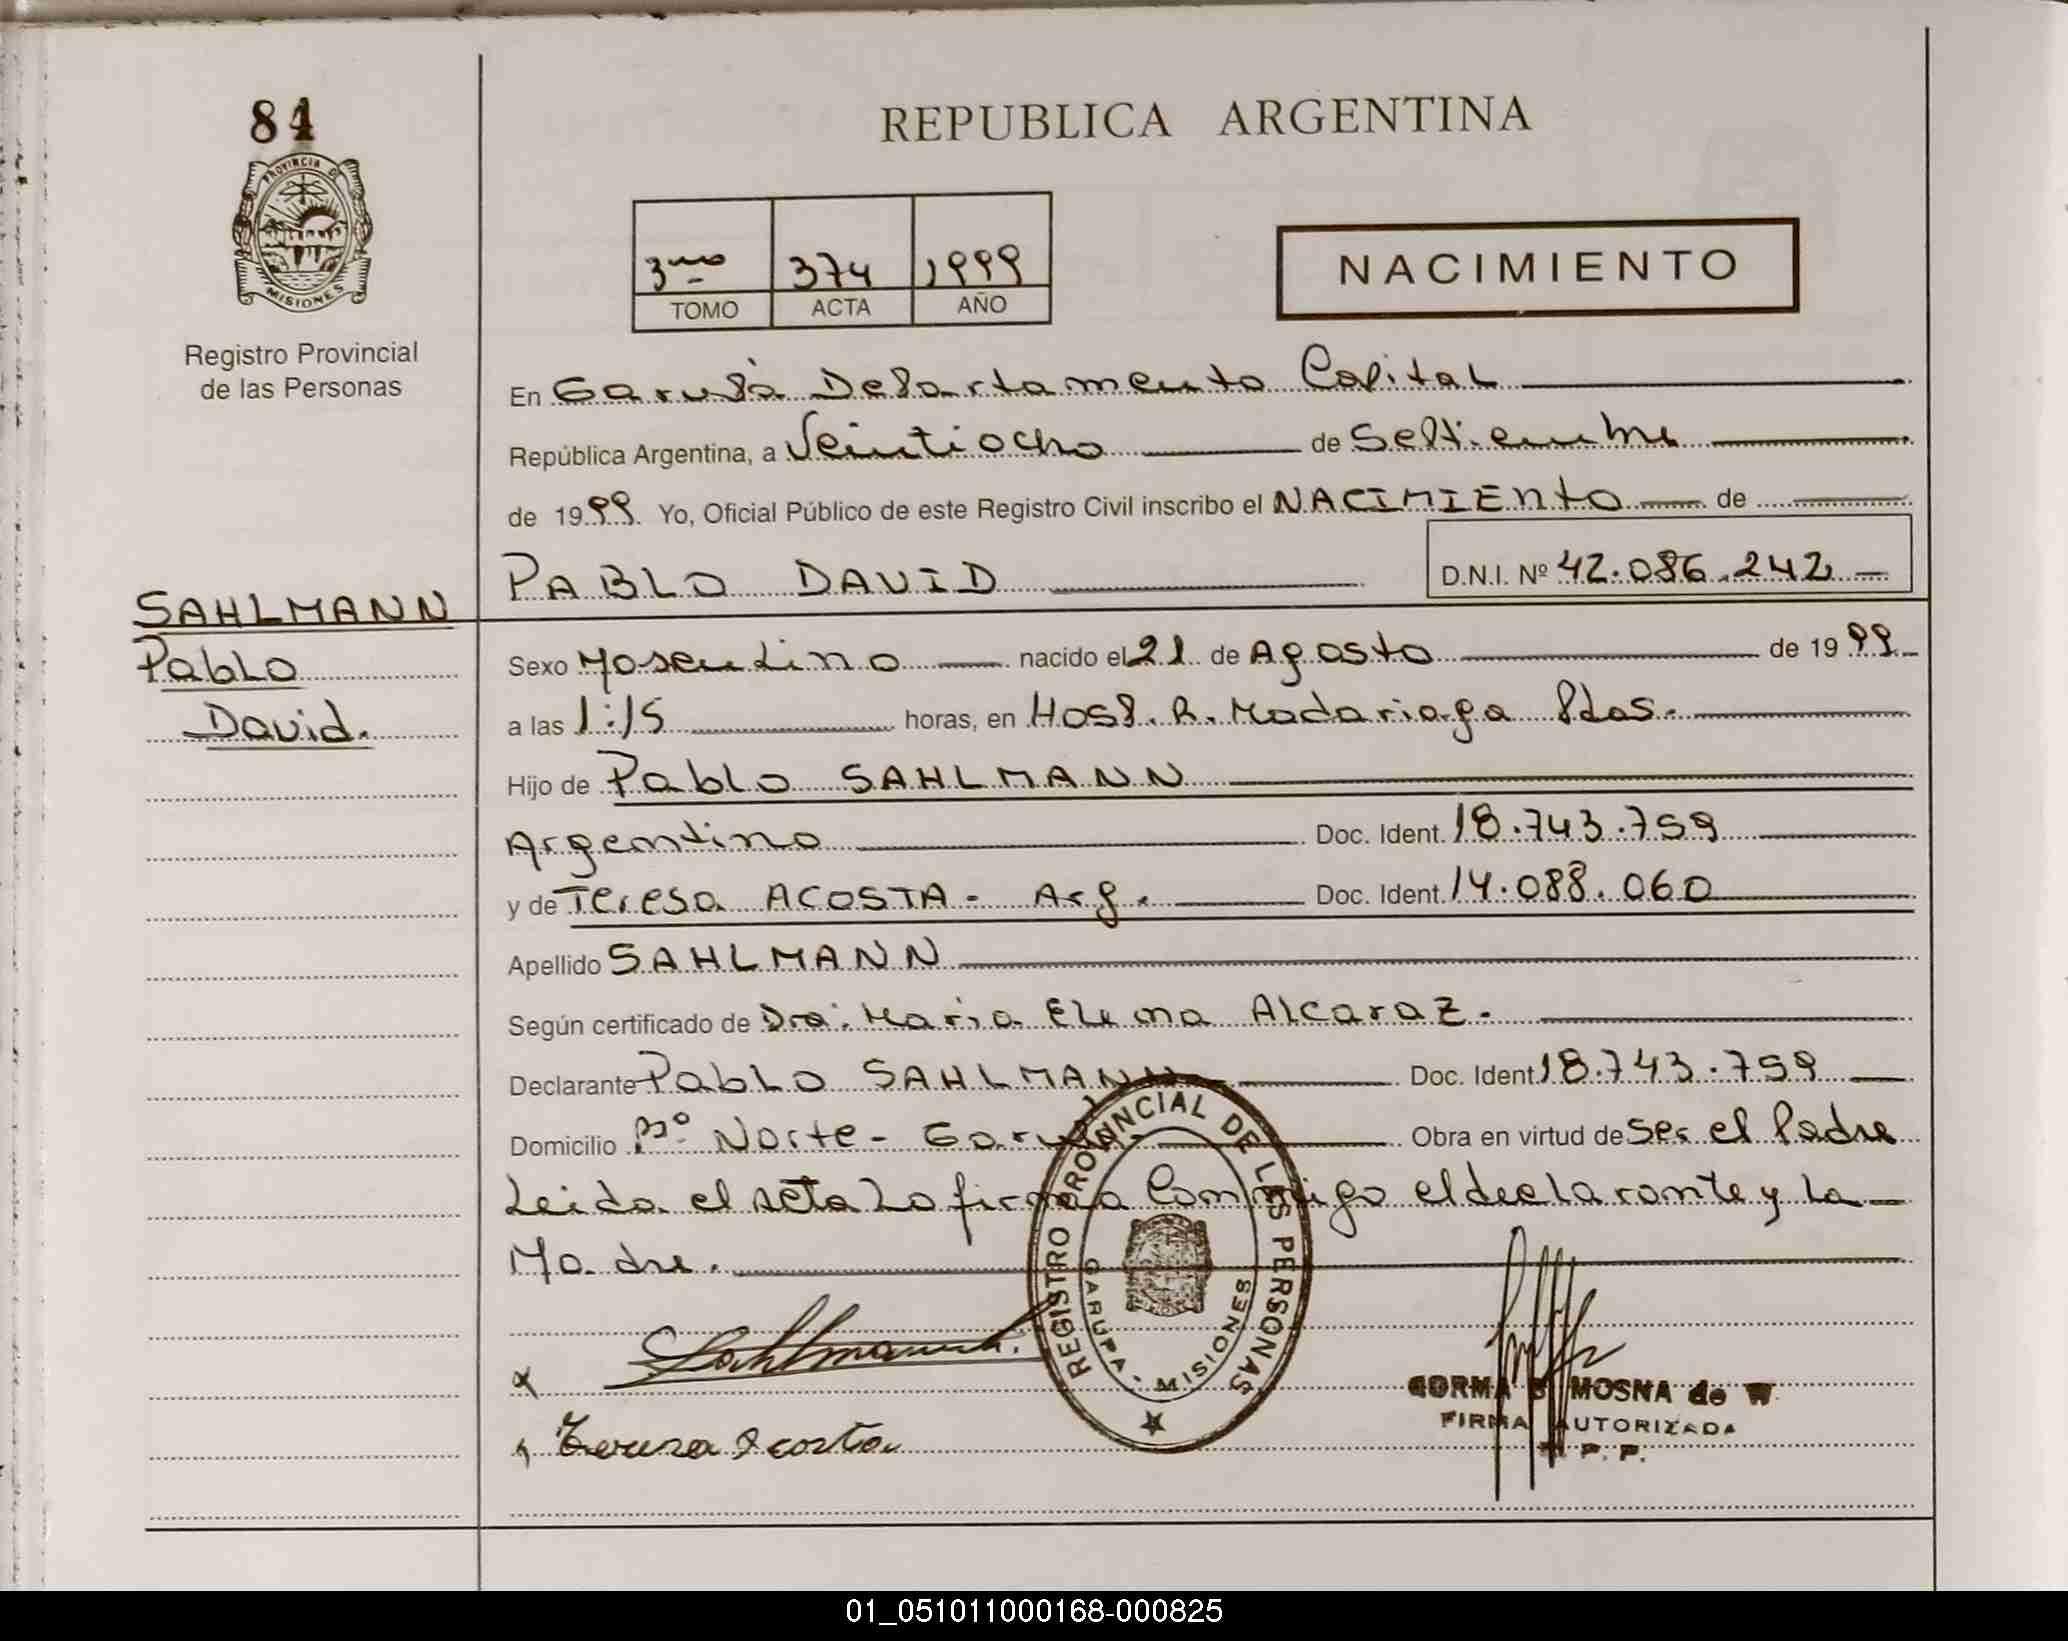 84
PROVINCIA DE
MISIONES
Registro Provincial
de las Personas
SAHLMANN
Pablo
David.
REPUBLICA ARGENTINA
3ero 374 1999
TOMO ACTA AÑO
NACIMIENTO
En Garupá Departamento Capital
República Argentina, a Veintiocho de Septiembre
de 1999. Yo, Oficial Público de este Registro Civil inscribo el NACIMIENTO de
PABLO DAVID
D.N.I. Nº 42.086.242
Sexo Masculino nacido el 21 de Agosto de 1999
a las 1:15 horas, en Hosp. R. Madariaga Pdas.
Hijo de Pablo SAHLMANN
Argentino Doc. Ident. 18.743.759
y de Teresa ACOSTA - Arg. Doc. Ident. 14.088.060
Apellido SAHLMANN
Según certificado de Dra. Maria Elena Alcaraz.
Declarante Pablo SAHLMANN Doc. Ident. 18.743.759
Domicilio Bº Norte - Garupá Obra en virtud de ser el Padre
Leida el acta La firma Conmigo el declarante y La
Madre.
REGISTRO PROVINCIAL DE LAS PERSONAS
GARUPA - MISIONES
Sahlmann
Teresa Acosta
MOSNA de W
FIRMA AUTORIZADA
P. P.
01_051011000168-000825